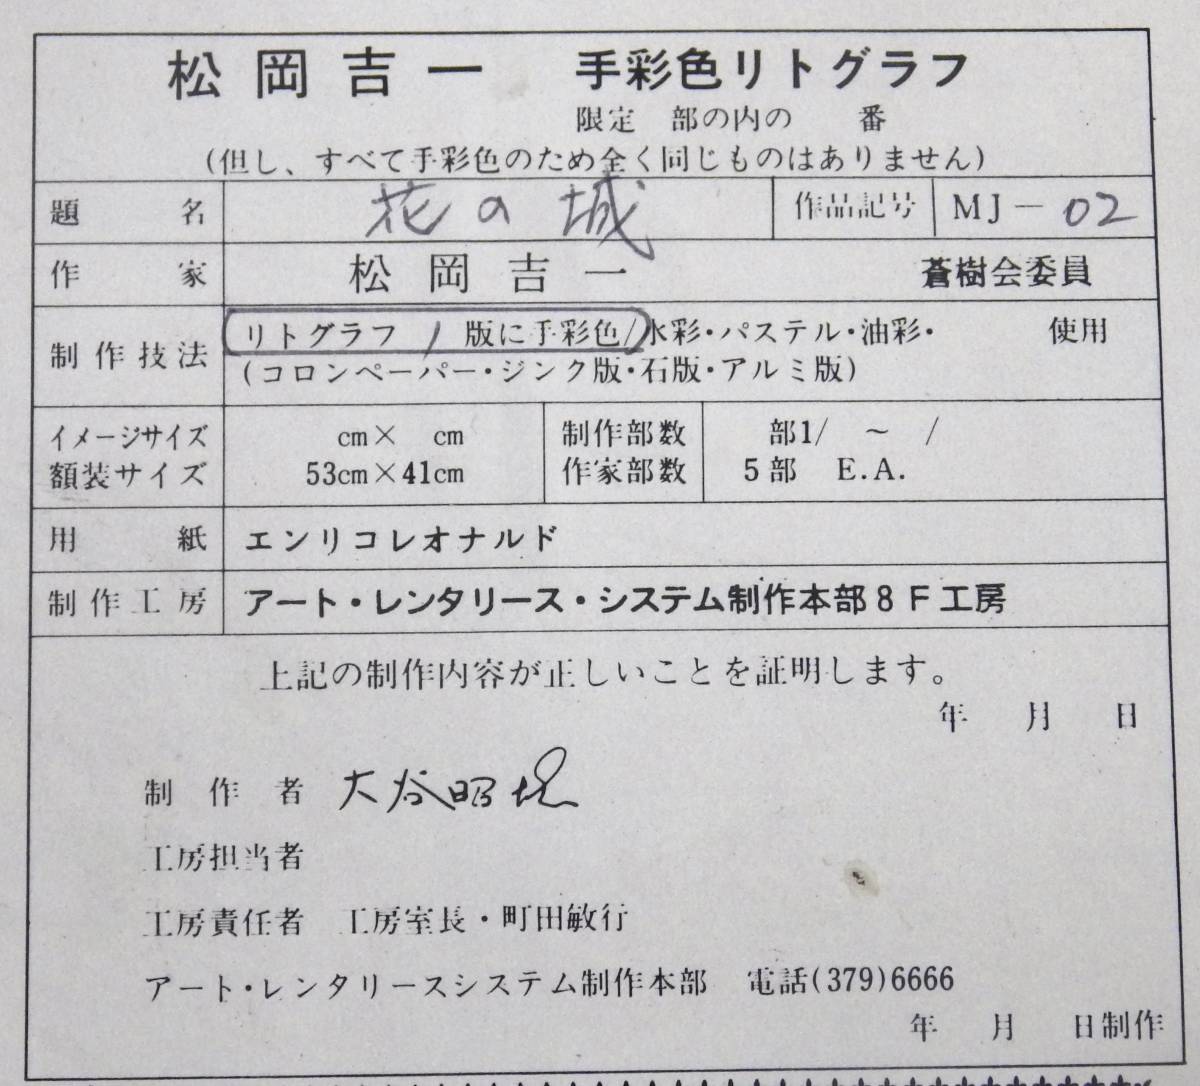 松岡吉一 手彩色リトグラフ
限定 部の内の 番
(但し、すべて手彩色のため全く同じものはありません)
題名 花の城 作品記号 MJ－02
作家 松岡吉一 蒼樹会委員
制作技法 リトグラフ / 版に手彩色/水彩・パステル・油彩・ 使用
(コロンペーパー・ジンク版・石版・アルミ版)
イメージサイズ cm× cm 制作部数 部1/ ～ /
額装サイズ 53cm×41cm 作家部数 5部 E.A.
用紙 エンリコレオナルド
制作工房 アート・レンタリース・システム制作本部8F工房
上記の制作内容が正しいことを証明します。
年 月 日
制作者 大谷昭
工房担当者
工房責任者 工房室長・町田敏行
アート・レンタリースシステム制作本部 電話(379)6666
年 月 日制作